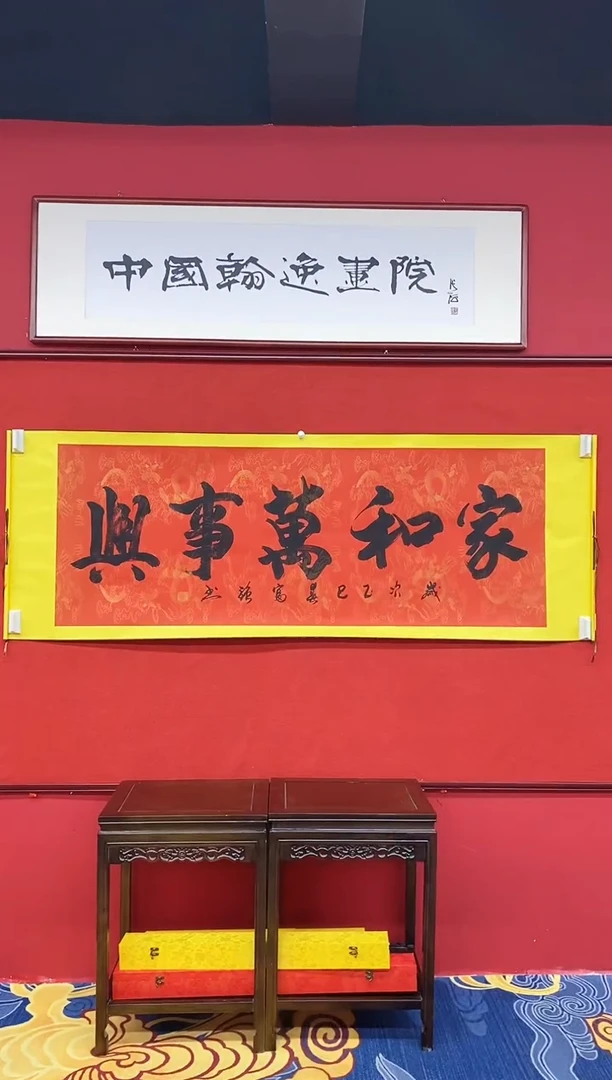 中國翰逸畫院
家和萬事興
歲次乙巳富強书